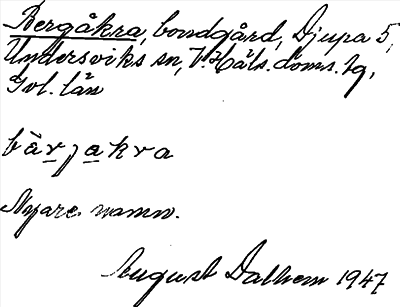 Bergåkra, bondgård, Djupa 5,
Undersviks sn, V. Häls. doms. tg,
Gvl. län
bàrjakra
Nyare namn.
August Dalhem 1947